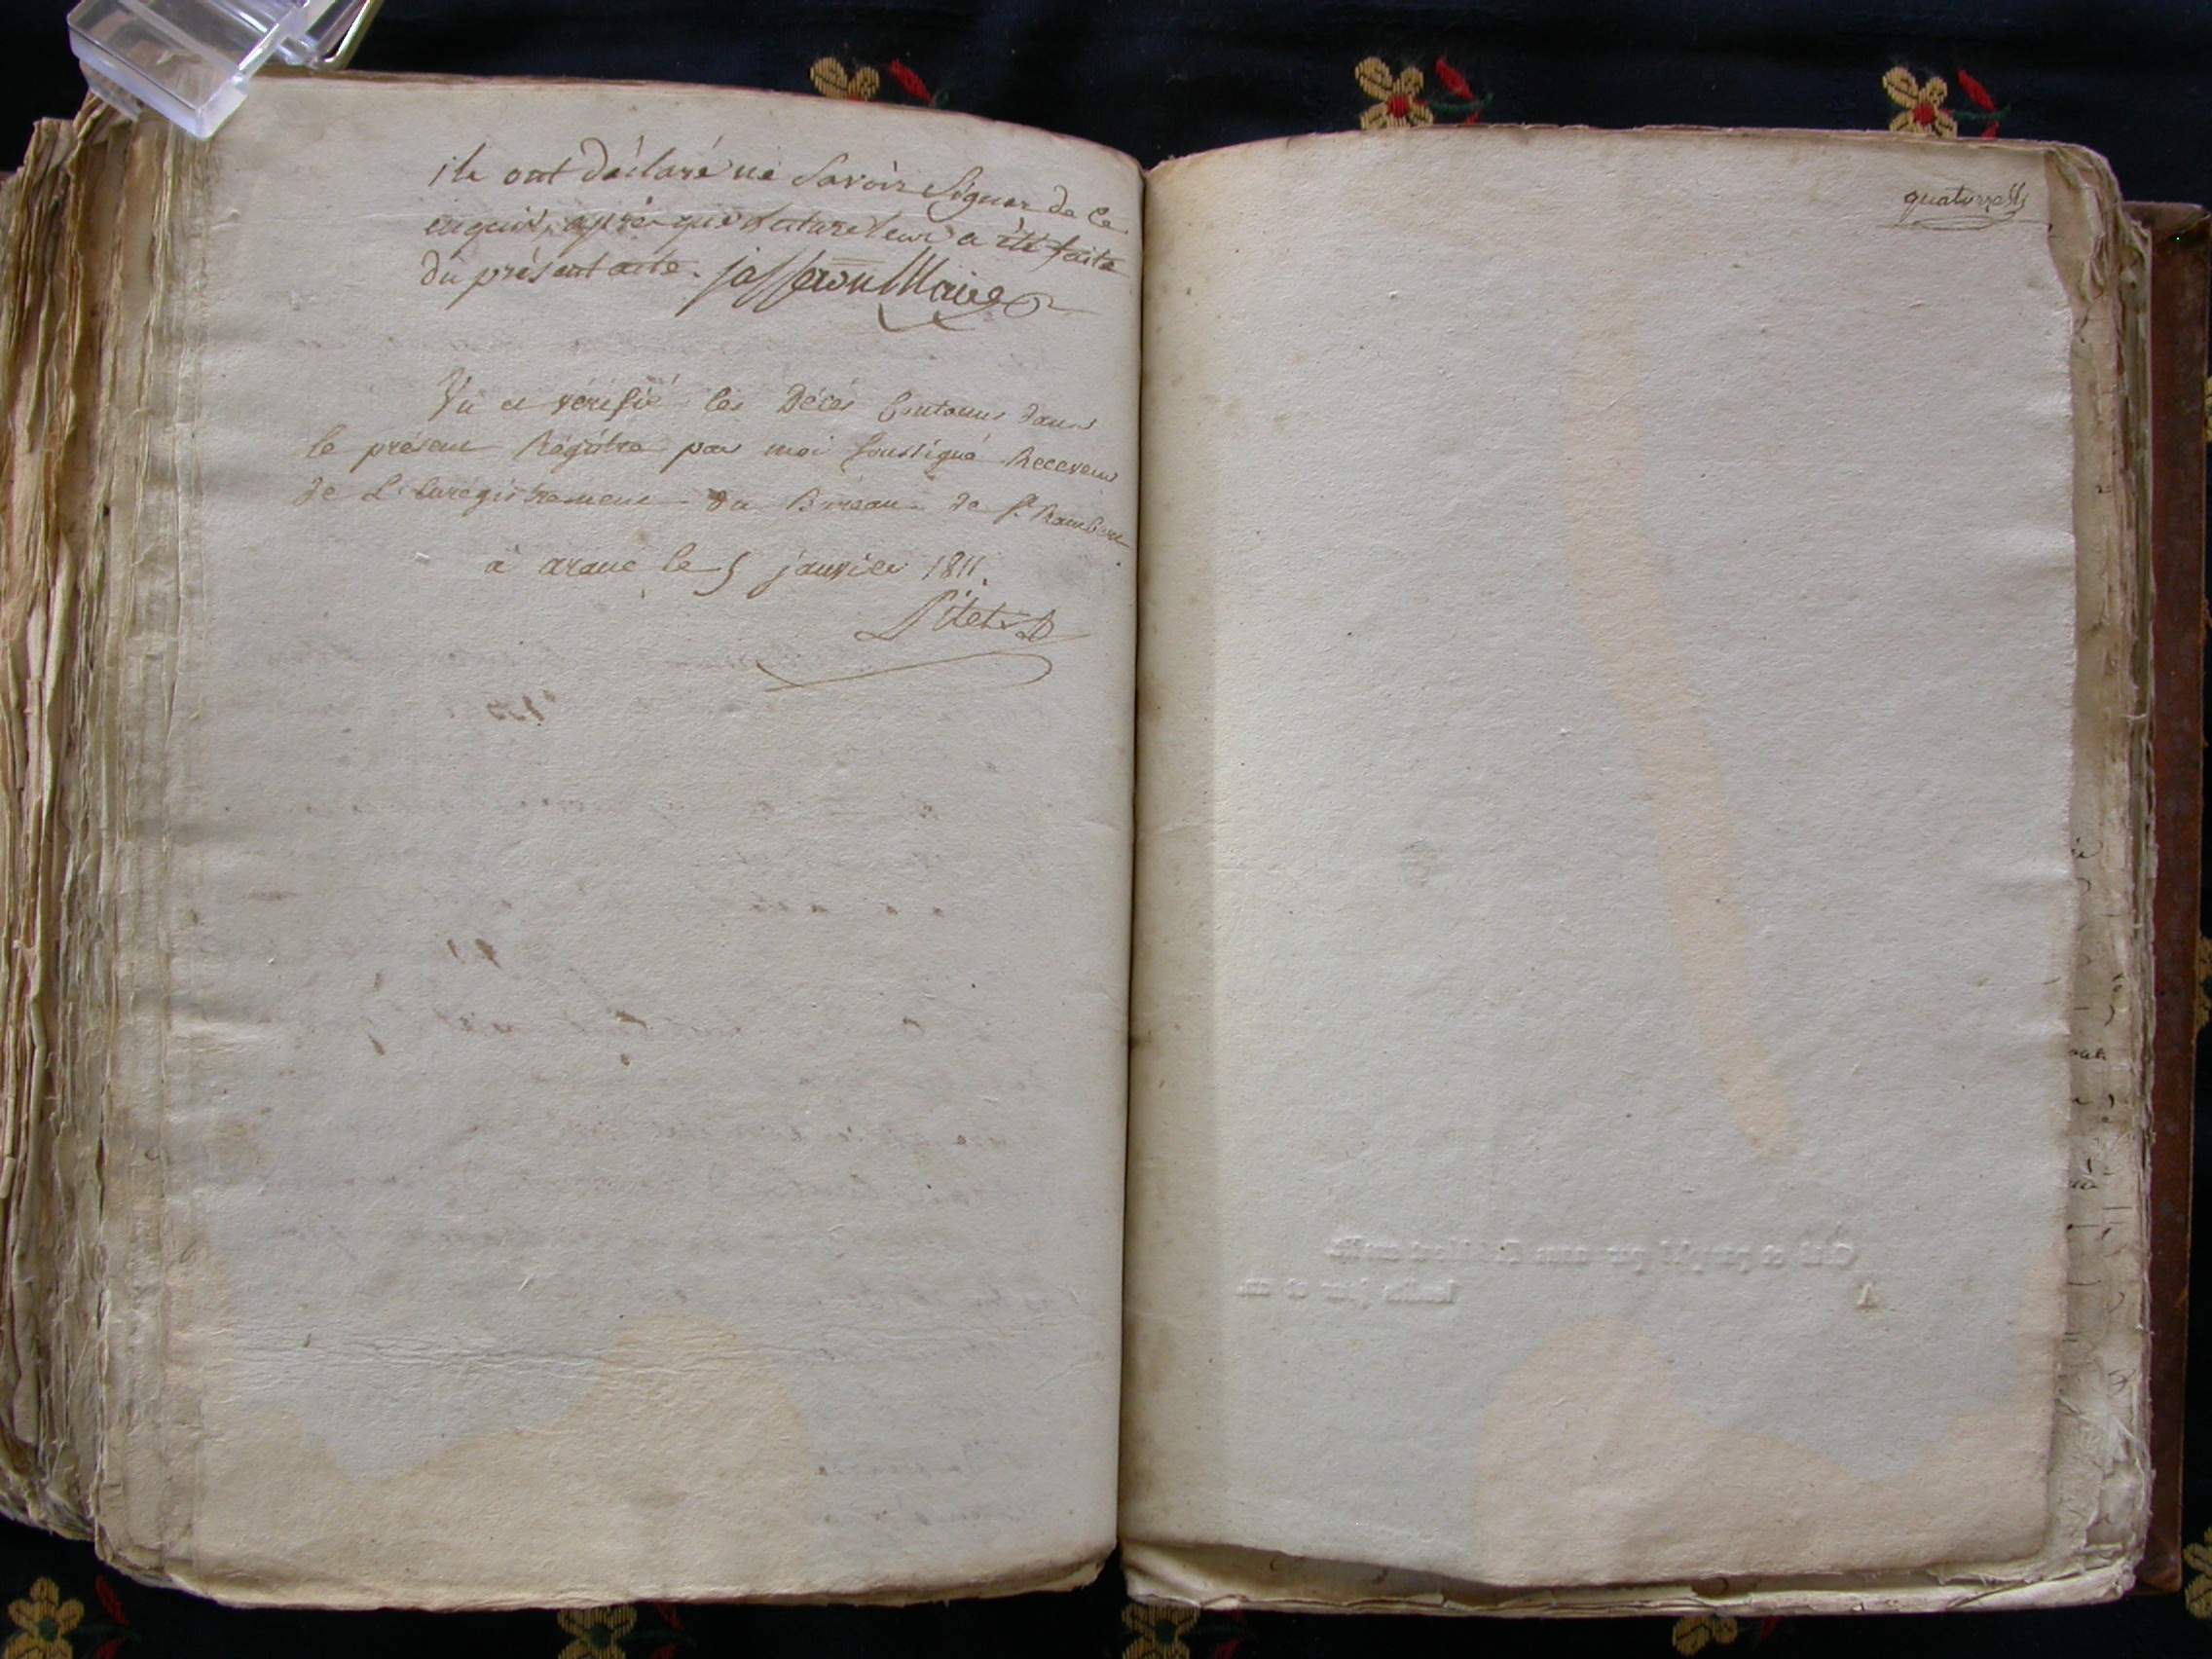 ils ont déclaré ne Savoir Signer de Ce
enquis, après que lecture leur a été faite
du présent acte. jasseron Maire
Vu et vérifié les Décès Contenus dans
le présent Régistre par moi Soussigné Receveur
de L'Enregistrement du Bureau de St. Rambert
à arane le 5 janvier 1811.
quatorze